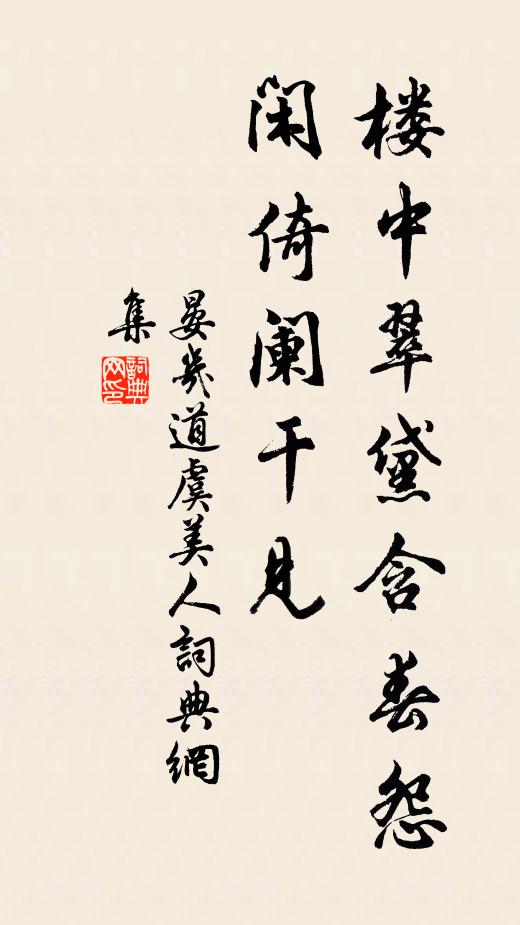 楼中翠黛含春怨
闲倚阑干见
晏幾道虞美人詞典網
集
詞典
网印